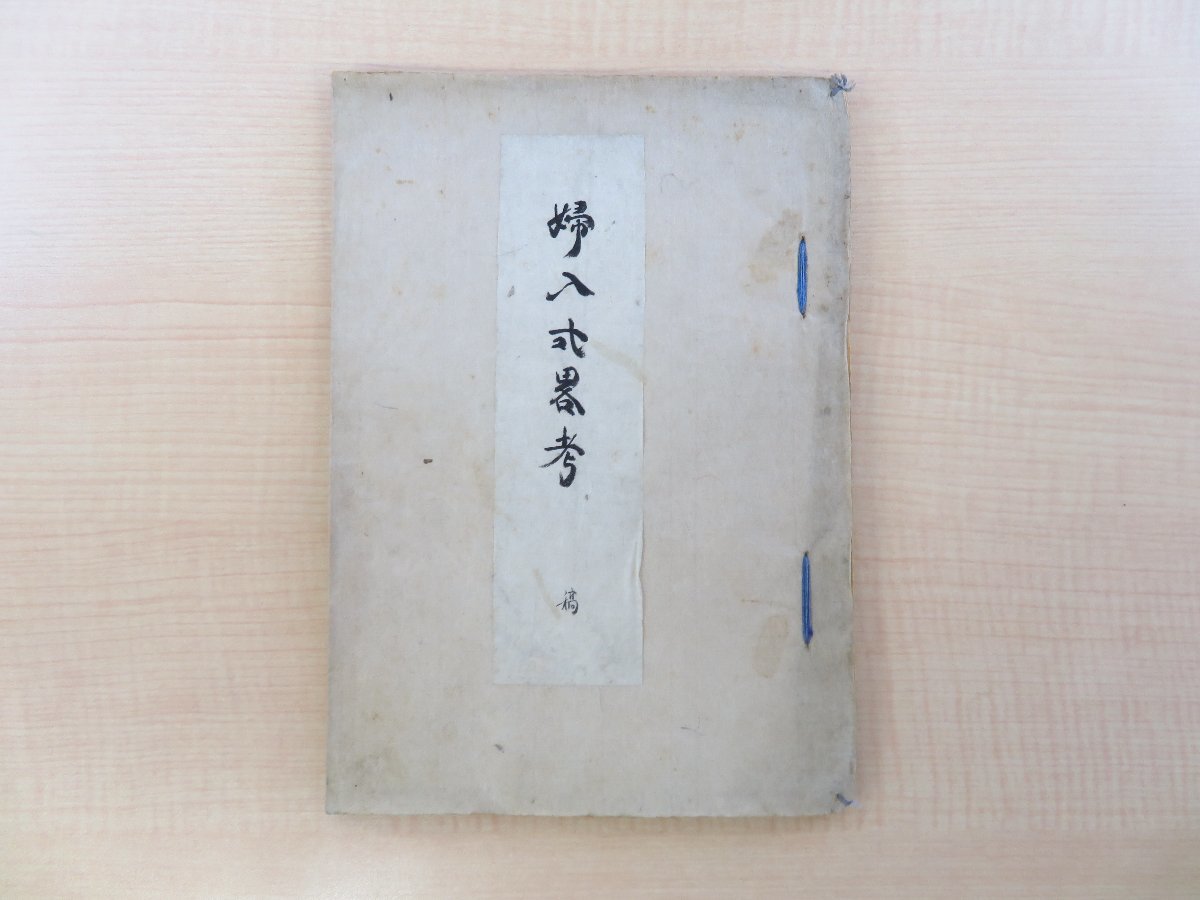 婦入式畧考
稿